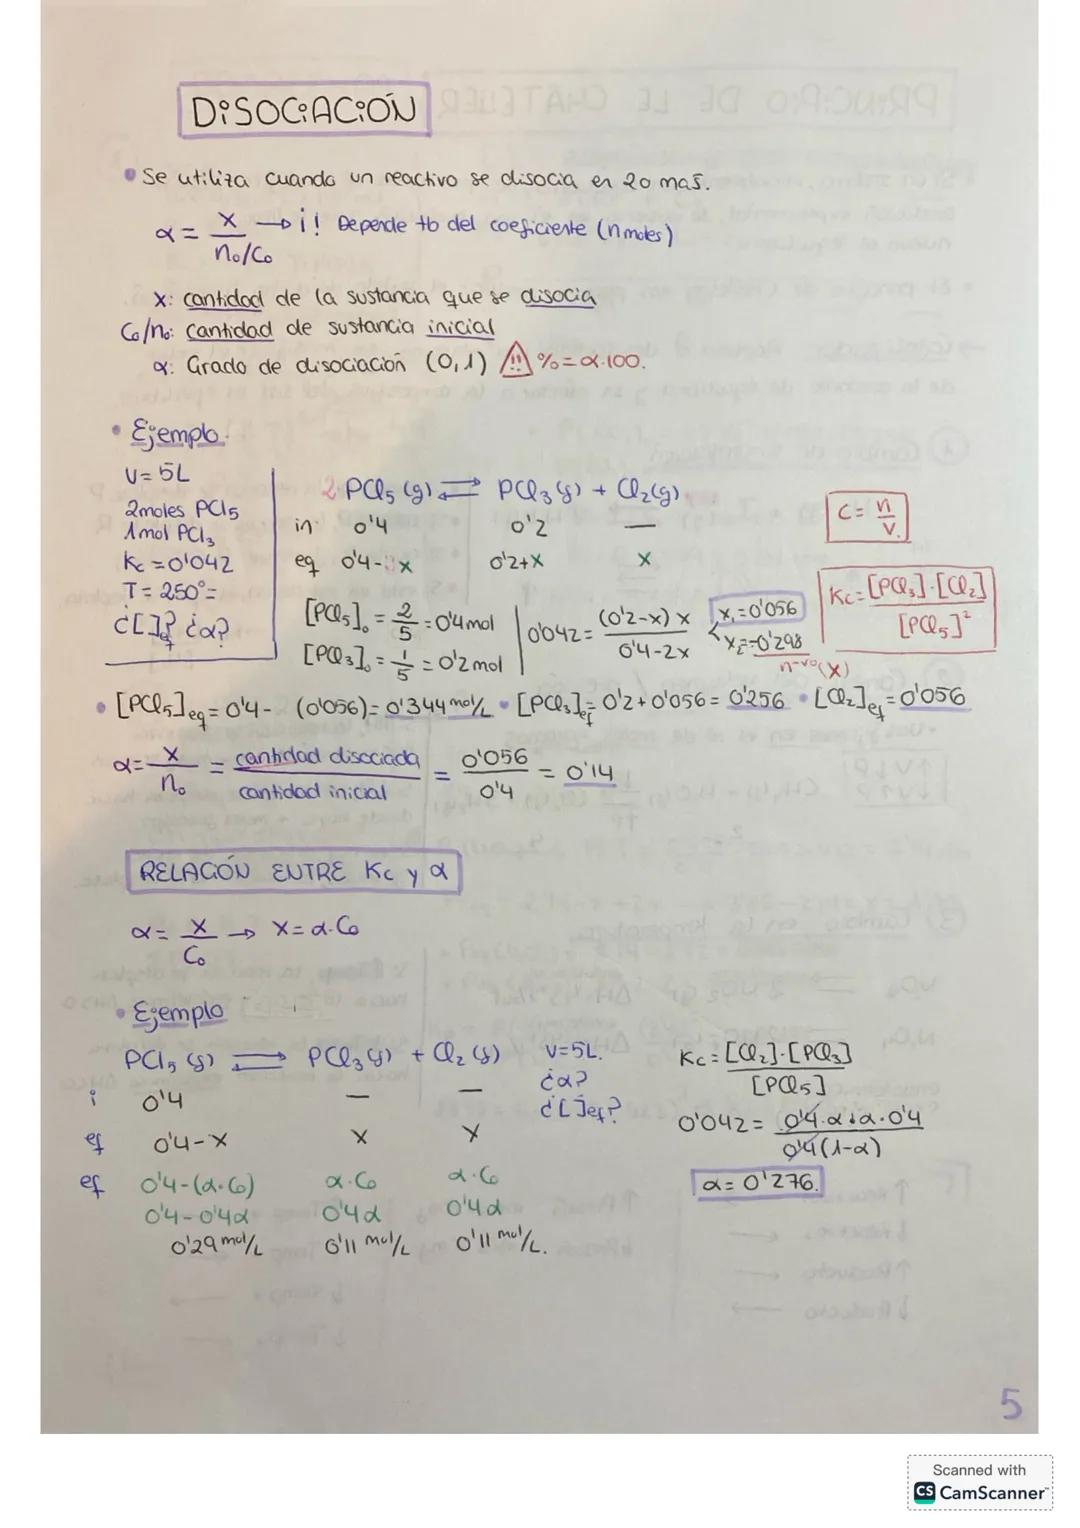 DISOCIACIÓN
Se utiliza cuando un reactivo se disocia en 2 o mas.
α = x / n₀/C₀ → ¡! Depende tb del coeficiente (n moles)
X: cantidad de la sustancia que se disocia
C₀/n₀: cantidad de sustancia inicial
α: Grado de disociación (0,1) ⚠ % = α·100.
Ejemplo.
V = 5L
2 moles PCl5
1 mol PCl3
Kc = 0'042
T = 250º=
¿[ ]eq? ¿α?
2 PCl5 (g) ⇌ PCl3 (g) + Cl2 (g)
in 0'4 0'2 —
eq 0'4- x 0'2+x x
C = n / V.
[PCl5]₀ = 2/5 = 0'4 mol
[PCl3]₀ = 1/5 = 0'2 mol
0'042 = (0'2-x) x / 0'4-2x
x₁ = 0'056
x₂ = -0'298
n-vo (X)
Kc = [PCl3]·[Cl2] / [PCl5]²
[PCl5]eq = 0'4- (0'056) = 0'344 mol/L • [PCl3]eq = 0'2+0'056 = 0'256 • [Cl2]eq = 0'056
α = x / n₀ = cantidad disociada / cantidad inicial = 0'056 / 0'4 = 0'14
RELACIÓN ENTRE Kc y α
α = x / C₀ → x = α·C₀
Ejemplo
PCl5 (g) ⇌ PCl3 (g) + Cl2 (g)
V=5L.
¿α?
¿[ ]eq?
i 0'4 — —
eq 0'4-x x x
eq 0'4-(α·C₀) α·C₀ α·C₀
0'4-0'4α 0'4α 0'4α
0'29 mol/L 0'11 mol/L 0'11 mol/L.
Kc = [Cl2]·[PCl3] / [PCl5]
0'042 = 0'4·α·α·0'4 / 0'4(1-α)
α = 0'276.
5
Scanned with
CS CamScanner